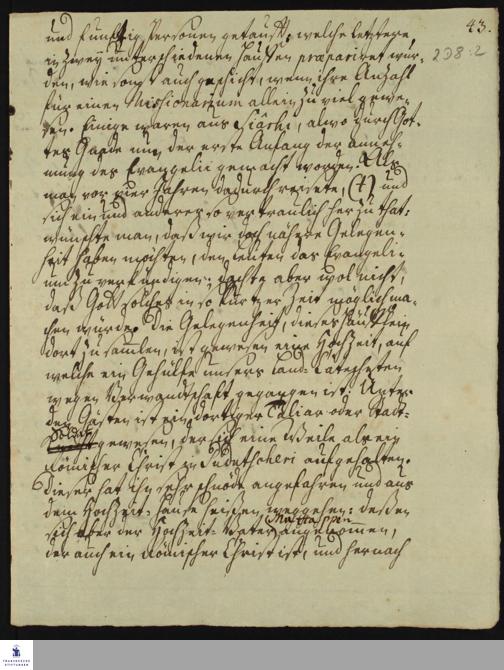 43.
238:2
und funffzig Personen getaufft, welche letztere,
in zwey unterschiedenen Hauffen præpariret wur-
den, wie sonst auch geschieht, wenn ihre Anzahl
für einen Missionarium allein zu viel gewe-
sen. Einige waren aus Siâchi, alwo durch Got-
tes Gnade nun der erste Anfang der anneh-
mung des Evangelii gemacht worden. Als
man vor vier Jahren dadurch reisete, (†) und
sich ein und anderer so vertraulich herzu that:
wünschte man, daß wir doch nähere Gelegen-
heit haben möchten, den Leuten das Evangeli-
um zu verkündigen; dachte aber wol nicht,
daß Gott solches in so kurtzer Zeit möglich ma-
chen würde. Die Gelegenheit, dieses Häufflein
dort zu samlen, ist gewesen eine Hochzeit, auf
welche ein Gehülfe unsers Land-Catecheten
wegen Verwandtschaft gegangen ist. Unter
den Gästen ist ein dortiger Taliar oder Stadt-
Soldat
gewesen, der sich eine Weile als ein
Römischer Christ zu Pudutscheri aufgehalten.
Dieser hat ihn sehr schnöde angefahren und aus
dem Hochzeit-Hause heißen weggehen: deßen
sich aber der Hochzeit-Vater angenommen,
der auch ein Römischer Christ ist, und hernach
FRANCKESCHE
STIFTUNGEN